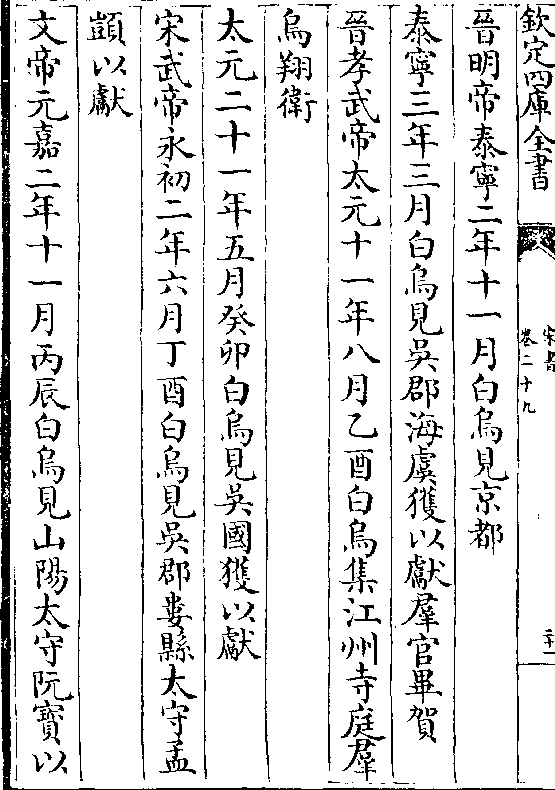 欽定四庫全書
宋書
卷二十九
二十一
晉明帝泰寧二年十一月白烏見京都
泰寧三年三月白烏見吳郡海虞獲以獻羣官畢賀
晉孝武帝太元十一年八月乙酉白烏集江州寺庭羣
烏翔衛
太元二十一年五月癸卯白烏見吳國獲以獻
宋武帝永初二年六月丁酉白烏見吳郡婁縣太守孟
顗以獻
文帝元嘉二年十一月丙辰白烏見山陽太守阮寶以